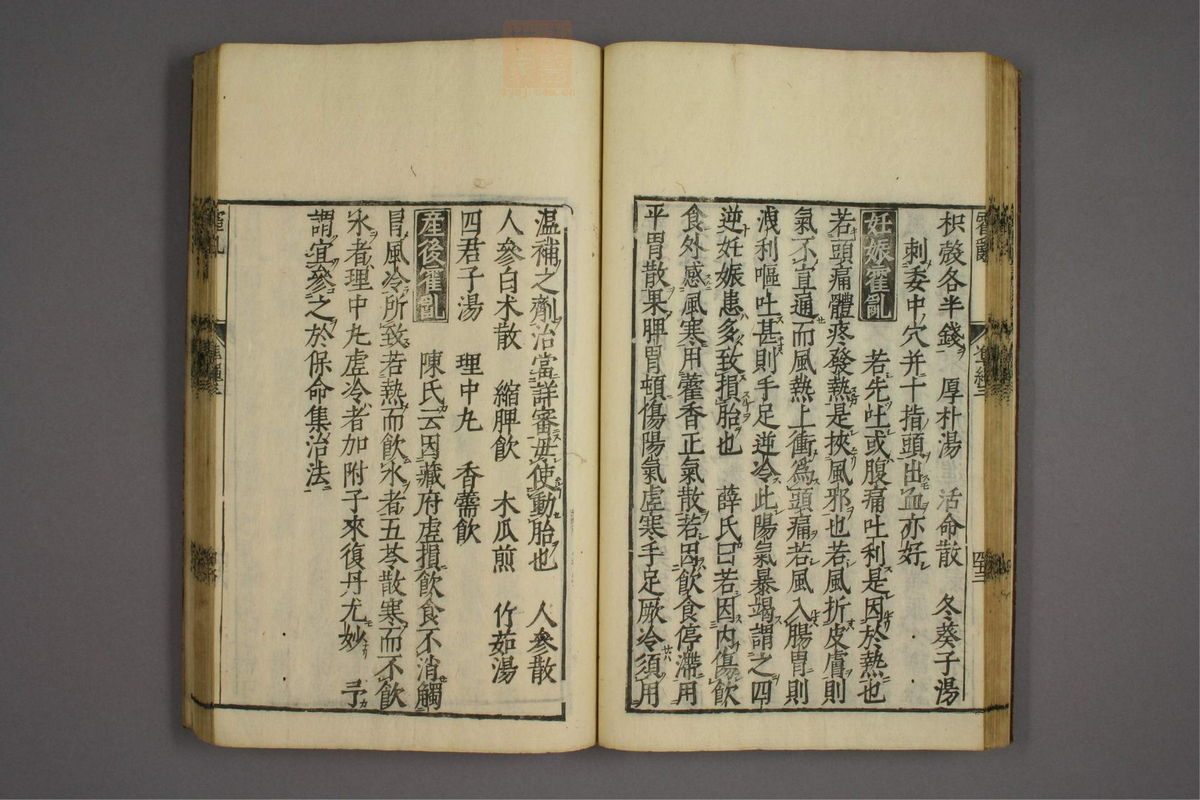 枳殼各半錢　厚朴湯　活命散　冬葵子湯
刺委中穴并十指頭出血亦好
妊娠霍亂　若先吐或腹痛吐利是因於熱也
若頭痛體疼發熱是挾風邪也若風折皮膚則
氣不宣通而風熱上衝爲頭痛若風入腸胃則
洩利嘔吐甚則手足逆冷此陽氣暴竭謂之四
逆妊娠患多致損胎也　薛氏曰若因内傷飲
食外感風寒用藿香正氣散若因飲食停滯用
平胃散果脾胃頓傷陽氣虚寒手足厥冷須用
温補之劑治當詳審毋使動胎也　人參散
人參白术散　縮脾飲　木瓜煎　竹茹湯
四君子湯　理中丸　香薷飲
産後霍亂　陳氏云因藏府虚損飲食不消觸
冒風冷所致若熱而飲水者五苓散寒而不飲
水者理中丸虚冷者加附子來復丹尤妙　予
謂宜參之於保命集治法